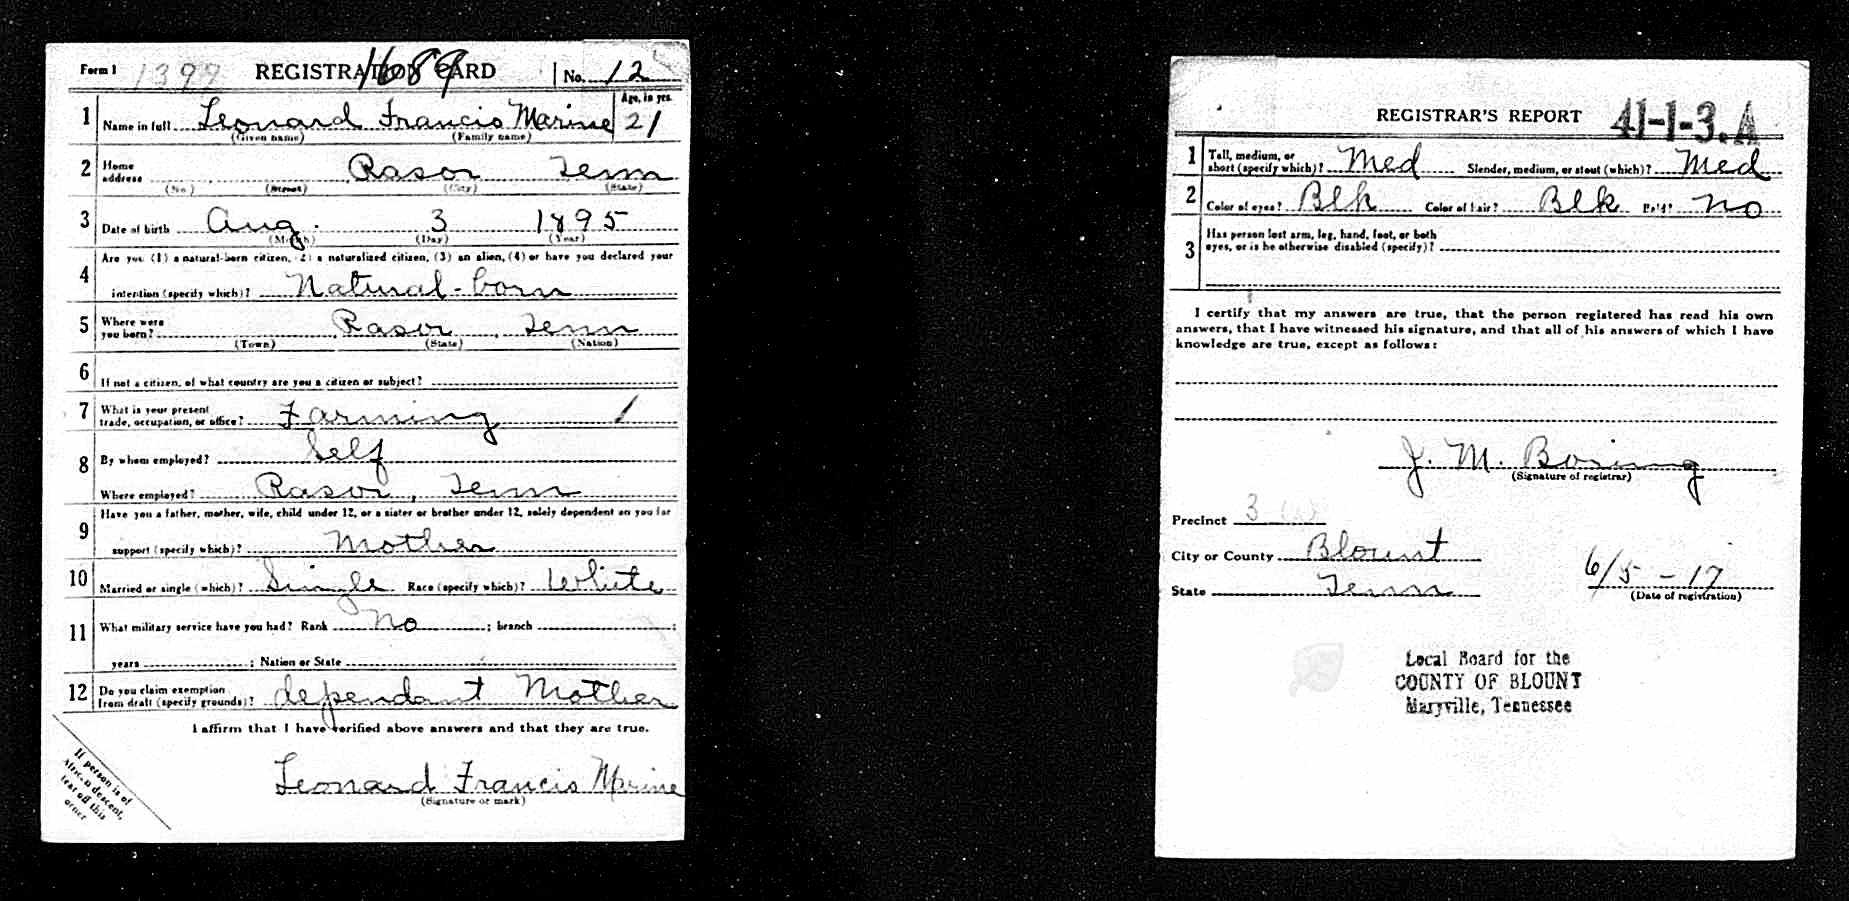 Form 1 1397 REGISTRATION CARD 1689 No. 12
1 Name in full Leonard Francis Marine Age, in yrs. 21
(Given name) (Family name)
2 Home address Rasor Tenn
(No.) (Street) (City) (State)
3 Date of birth Aug. 3 1895
(Month) (Day) (Year)
4 Are you (1) a natural-born citizen, (2) a naturalized citizen, (3) an alien, (4) or have you declared your
intention (specify which)? Natural-born
5 Where were you born? Rasor, Tenn
(Town) (State) (Nation)
6 If not a citizen, of what country are you a citizen or subject?
7 What is your present
trade, occupation, or office? Farming /
8 By whom employed? Self
Where employed? Rasor, Tenn
9 Have you a father, mother, wife, child under 12, or a sister or brother under 12, solely dependent on you for
support (specify which)? Mother
10 Married or single (which)? Single Race (specify which)? White
11 What military service have you had? Rank No ; branch ;
years ; Nation or State
12 Do you claim exemption
from draft (specify grounds)? dependant Mother
I affirm that I have verified above answers and that they are true.
Leonard Francis Marine
(Signature or mark)
If person is of
African descent,
tear off this
corner
REGISTRAR'S REPORT 41-1-3. A
1 Tall, medium, or
short (specify which)? Med Slender, medium, or stout (which)? Med
2 Color of eyes? Blk Color of hair? Blk Bald? No
3 Has person lost arm, leg, hand, foot, or both
eyes, or is he otherwise disabled (specify)?
I certify that my answers are true, that the person registered has read his own
answers, that I have witnessed his signature, and that all of his answers of which I have
knowledge are true, except as follows:
J. M. Boring
(Signature of registrar)
Precinct 3
City or County Blount
State Tenn
6/5-17
(Date of registration)
Local Board for the
COUNTY OF BLOUNT
Maryville, Tennessee